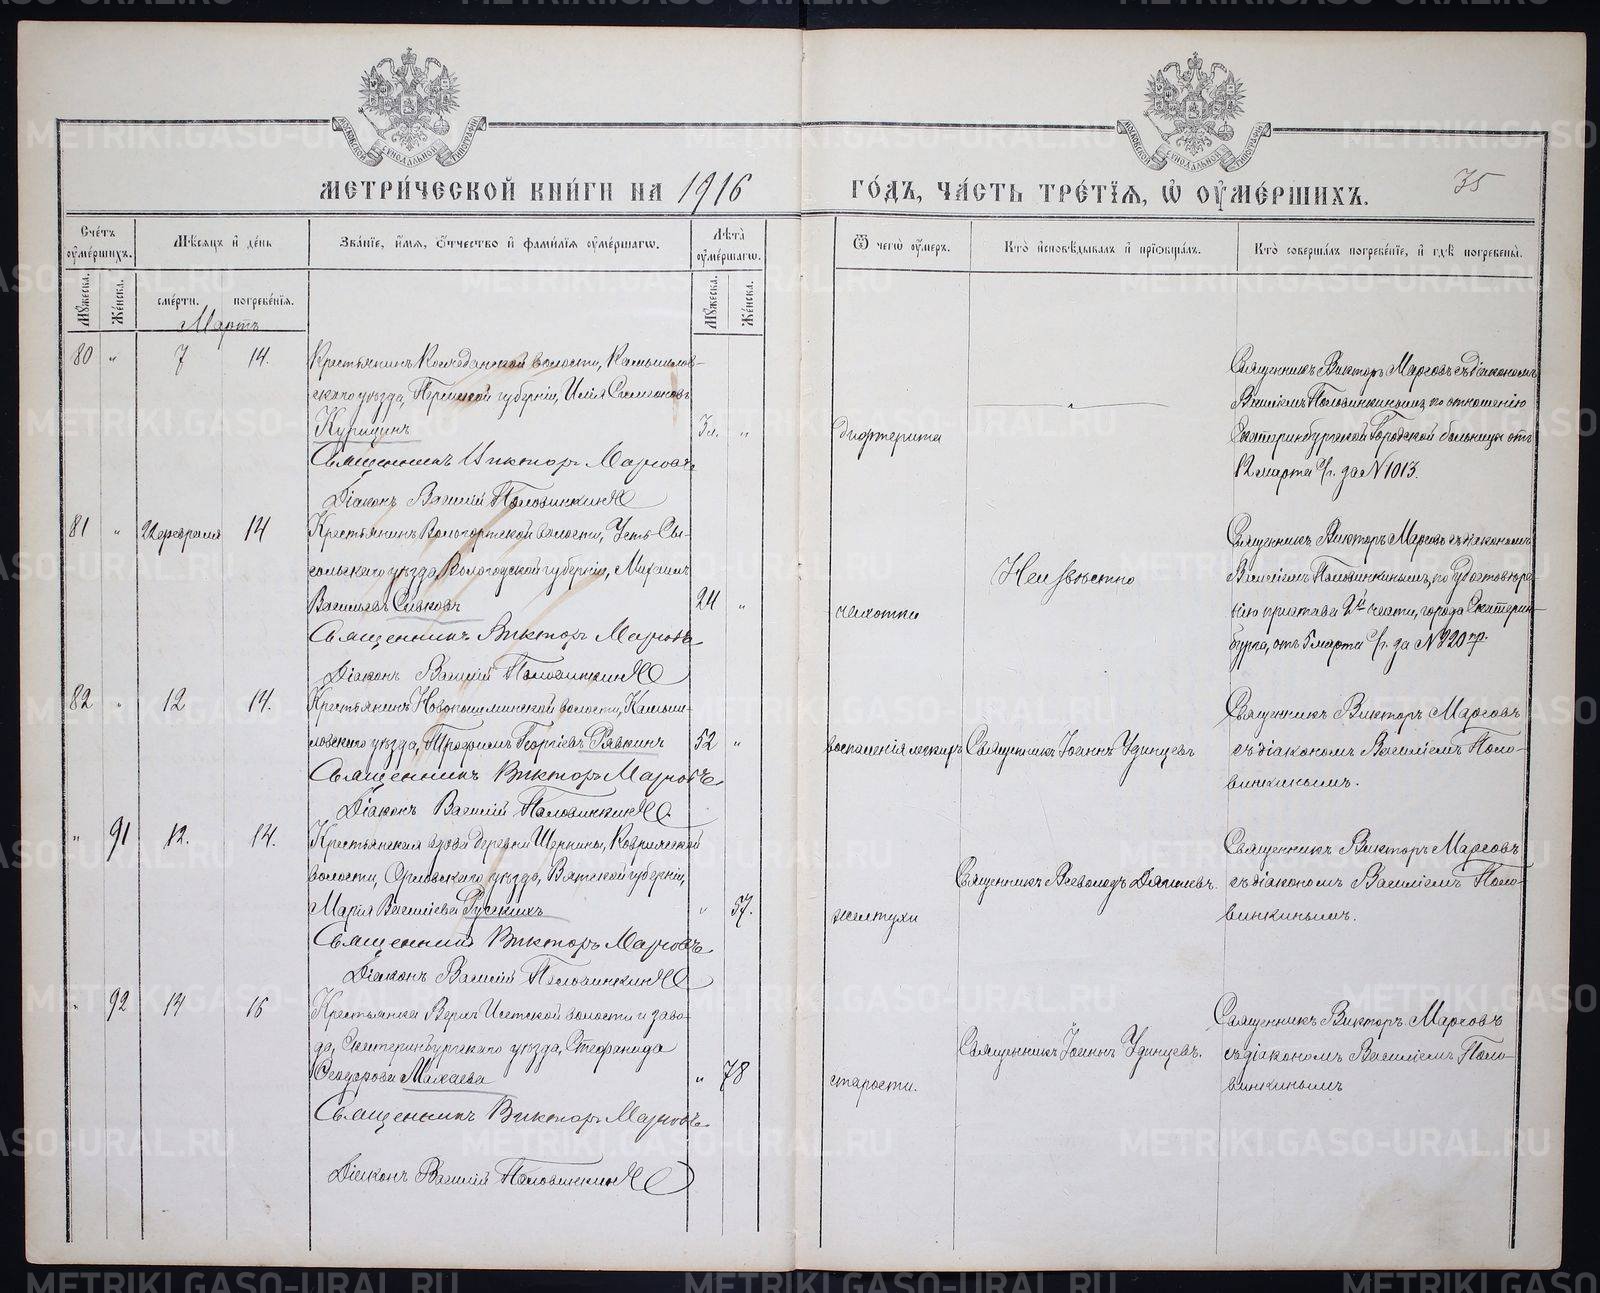 МЕТРИ́ЧЕСКОЙ КНИ́ГИ НА 1916
ГО́ДЪ, ЧА́СТЬ ТРЕ́ТЇѦ, Ѡ҆ ОУ҆МЕ́РШИХЪ.
35
МОСКОВСКОЙ СѴНОДАЛЬНОЙ ТИПОГРАФІИ
МОСКОВСКОЙ СѴНОДАЛЬНОЙ ТИПОГРАФІИ
Сче́тъ оу҆ме́ршихъ.
Мѣ́сяцъ и҆ де́нь
Зва́нїе, и҆́мя, ѻ҆́тчество и҆ фами́лїя оу҆ме́ршагѡ.
Лѣ́та оу҆ме́ршагѡ.
Ѿ чегѡ̀ оу҆́меръ.
Кто̀ и҆сповѣ́дывалъ и҆ прїѡбща́лъ.
Кто̀ соверша́лъ погребе́нїе, и҆ гдѣ̀ погребены̀.
Мꙋ́жеска.
Же́нска.
сме́рти.
погребе́нїя.
Мꙋ́жеска.
Же́нска.
Мартъ
80 " 7 14.
Крестьянинъ Колчеданской волости, Камышлов-
скаго уѣзда, Пермской губерніи, Илія Симеоновъ
Курицинъ 3 л. "
Священникъ Викторъ Марсовъ
Діаконъ Василій Половинкинъ
дифтерита
Священникъ Викторъ Марсовъ съ діакономъ
Василіемъ Половинкинымъ, по отношенію
Екатеринбургской Городской больницы отъ
12 марта с/г. за № 1013.
81 " 22 февраля 14
Крестьянинъ Вологортской волости, Усть-Сы-
сольскаго уѣзда, Вологодской губерніи, Михаилъ
Васильевъ Сивковъ 24 "
Священникъ Викторъ Марсовъ
Діаконъ Василій Половинкинъ
чахотки
Неизвѣстно
Священникъ Викторъ Марсовъ съ діакономъ
Василіемъ Половинкинымъ, по удостовѣре-
нію пристава 2й части, города Екатерин-
бурга, отъ 5 марта с/г. за № 220 пр.
82 " 12 14.
Крестьянинъ Новопышминской волости, Камыш-
ловскаго уѣзда, Трофимъ Георгіевъ Рявкинъ 52 "
Священникъ Викторъ Марсовъ
Діаконъ Василій Половинкинъ
воспаленія легкихъ
Священникъ Іоаннъ Удинцевъ
Священникъ Викторъ Марсовъ
съ діакономъ Василіемъ Поло-
винкинымъ.
" 91 12. 14.
Крестьянская вдова деревни Шернины, Ковримской
волости, Орловскаго уѣзда, Вятской губерніи,
Марія Василіева Русскихъ " 57.
Священникъ Викторъ Марсовъ
Діаконъ Василій Половинкинъ
желтухи
Священникъ Всеволодъ
Священникъ Викторъ Марсовъ
съ діакономъ Василіемъ Поло-
винкинымъ.
" 92 14 16
Крестьянка Верхъ Исетской волости и заво-
да, Екатеринбургскаго уѣзда, Стефанида
Ѳеодорова Малаева " 78
Священникъ Викторъ Марсовъ
Діаконъ Василій Половинкинъ
старости.
Священникъ Іоаннъ Удинцевъ.
Священникъ Викторъ Марсовъ
съ діакономъ Василіемъ Поло-
винкинымъ
METRIKI.GASO-URAL.RU